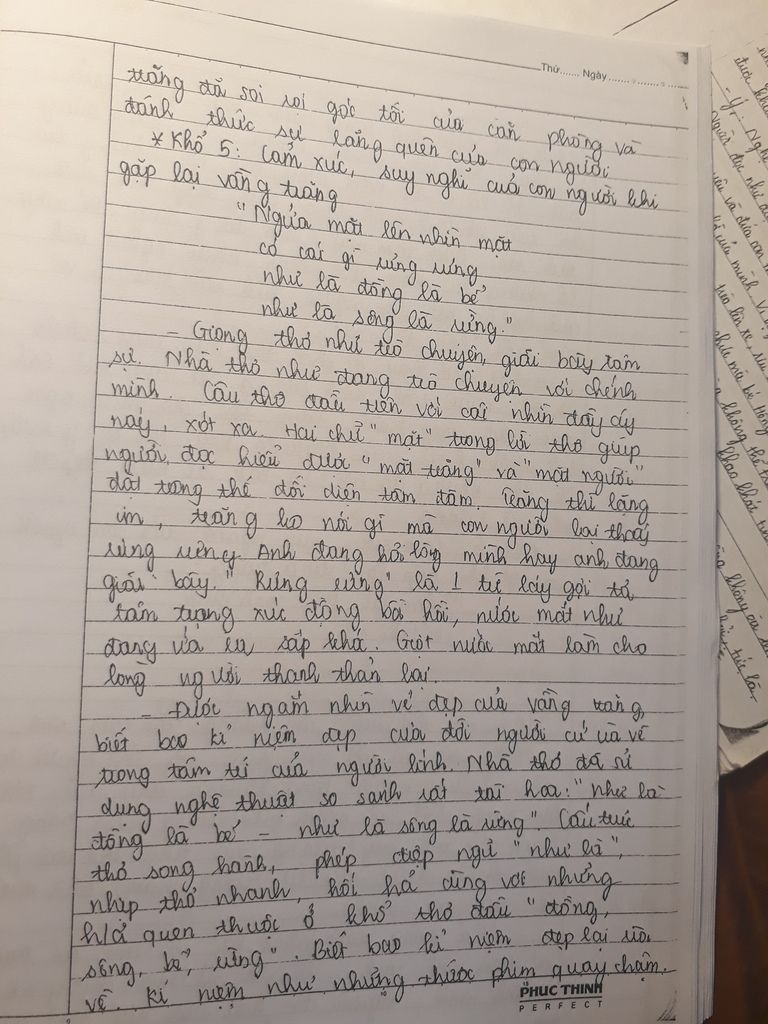 Thứ....... Ngày.....................
trăng đã soi rọi góc tối của căn phòng và
đánh thức sự lãng quên của con người
* Khổ 5: Cảm xúc, suy nghĩ của con người khi
gặp lại vầng trăng
"Ngửa mặt lên nhìn mặt
có cái gì rưng rưng
như là đồng là bể
như là sông là rừng."
- Giọng thơ như trò chuyện, giãi bày tâm
sự. Nhà thơ như đang trò chuyện với chính
mình. Câu thơ đầu tiên với cái nhìn đầy áy
náy, xót xa. Hai chữ "mặt" trong lời thơ giúp
người đọc hiểu được "mặt trăng" và "mặt người"
đặt trong thế đối diện tâm đàm. Trăng thì lặng
im, trăng ko nói gì mà con người lại thấy
rưng rưng. Anh đang hỏi lòng mình hay anh đang
giãi bày. "Rưng rưng" là 1 từ láy gợi tả
tâm trạng xúc động bồi hồi, nước mắt như
đang ứa ra, sắp khóc. Giọt nước mắt làm cho
lòng người thanh thản lại.
- Được ngắm nhìn vẻ đẹp của vầng trăng,
biết bao kỉ niệm đẹp của đời người cứ ùa về
trong tâm trí của người lính. Nhà thơ đã sử
dụng nghệ thuật so sánh rất tài hoa: "như là
đồng là bể - như là sông là rừng". Cấu trúc
thơ song hành, phép điệp ngữ "như là",
nhịp thơ nhanh, hối hả cùng với những
h/ả quen thuộc ở khổ thơ đầu "đồng,
sông, bể, rừng". Biết bao kỉ niệm đẹp lại ùa
về. Kỉ niệm như những thước phim quay chậm.
PHUC THINH
PERFECT